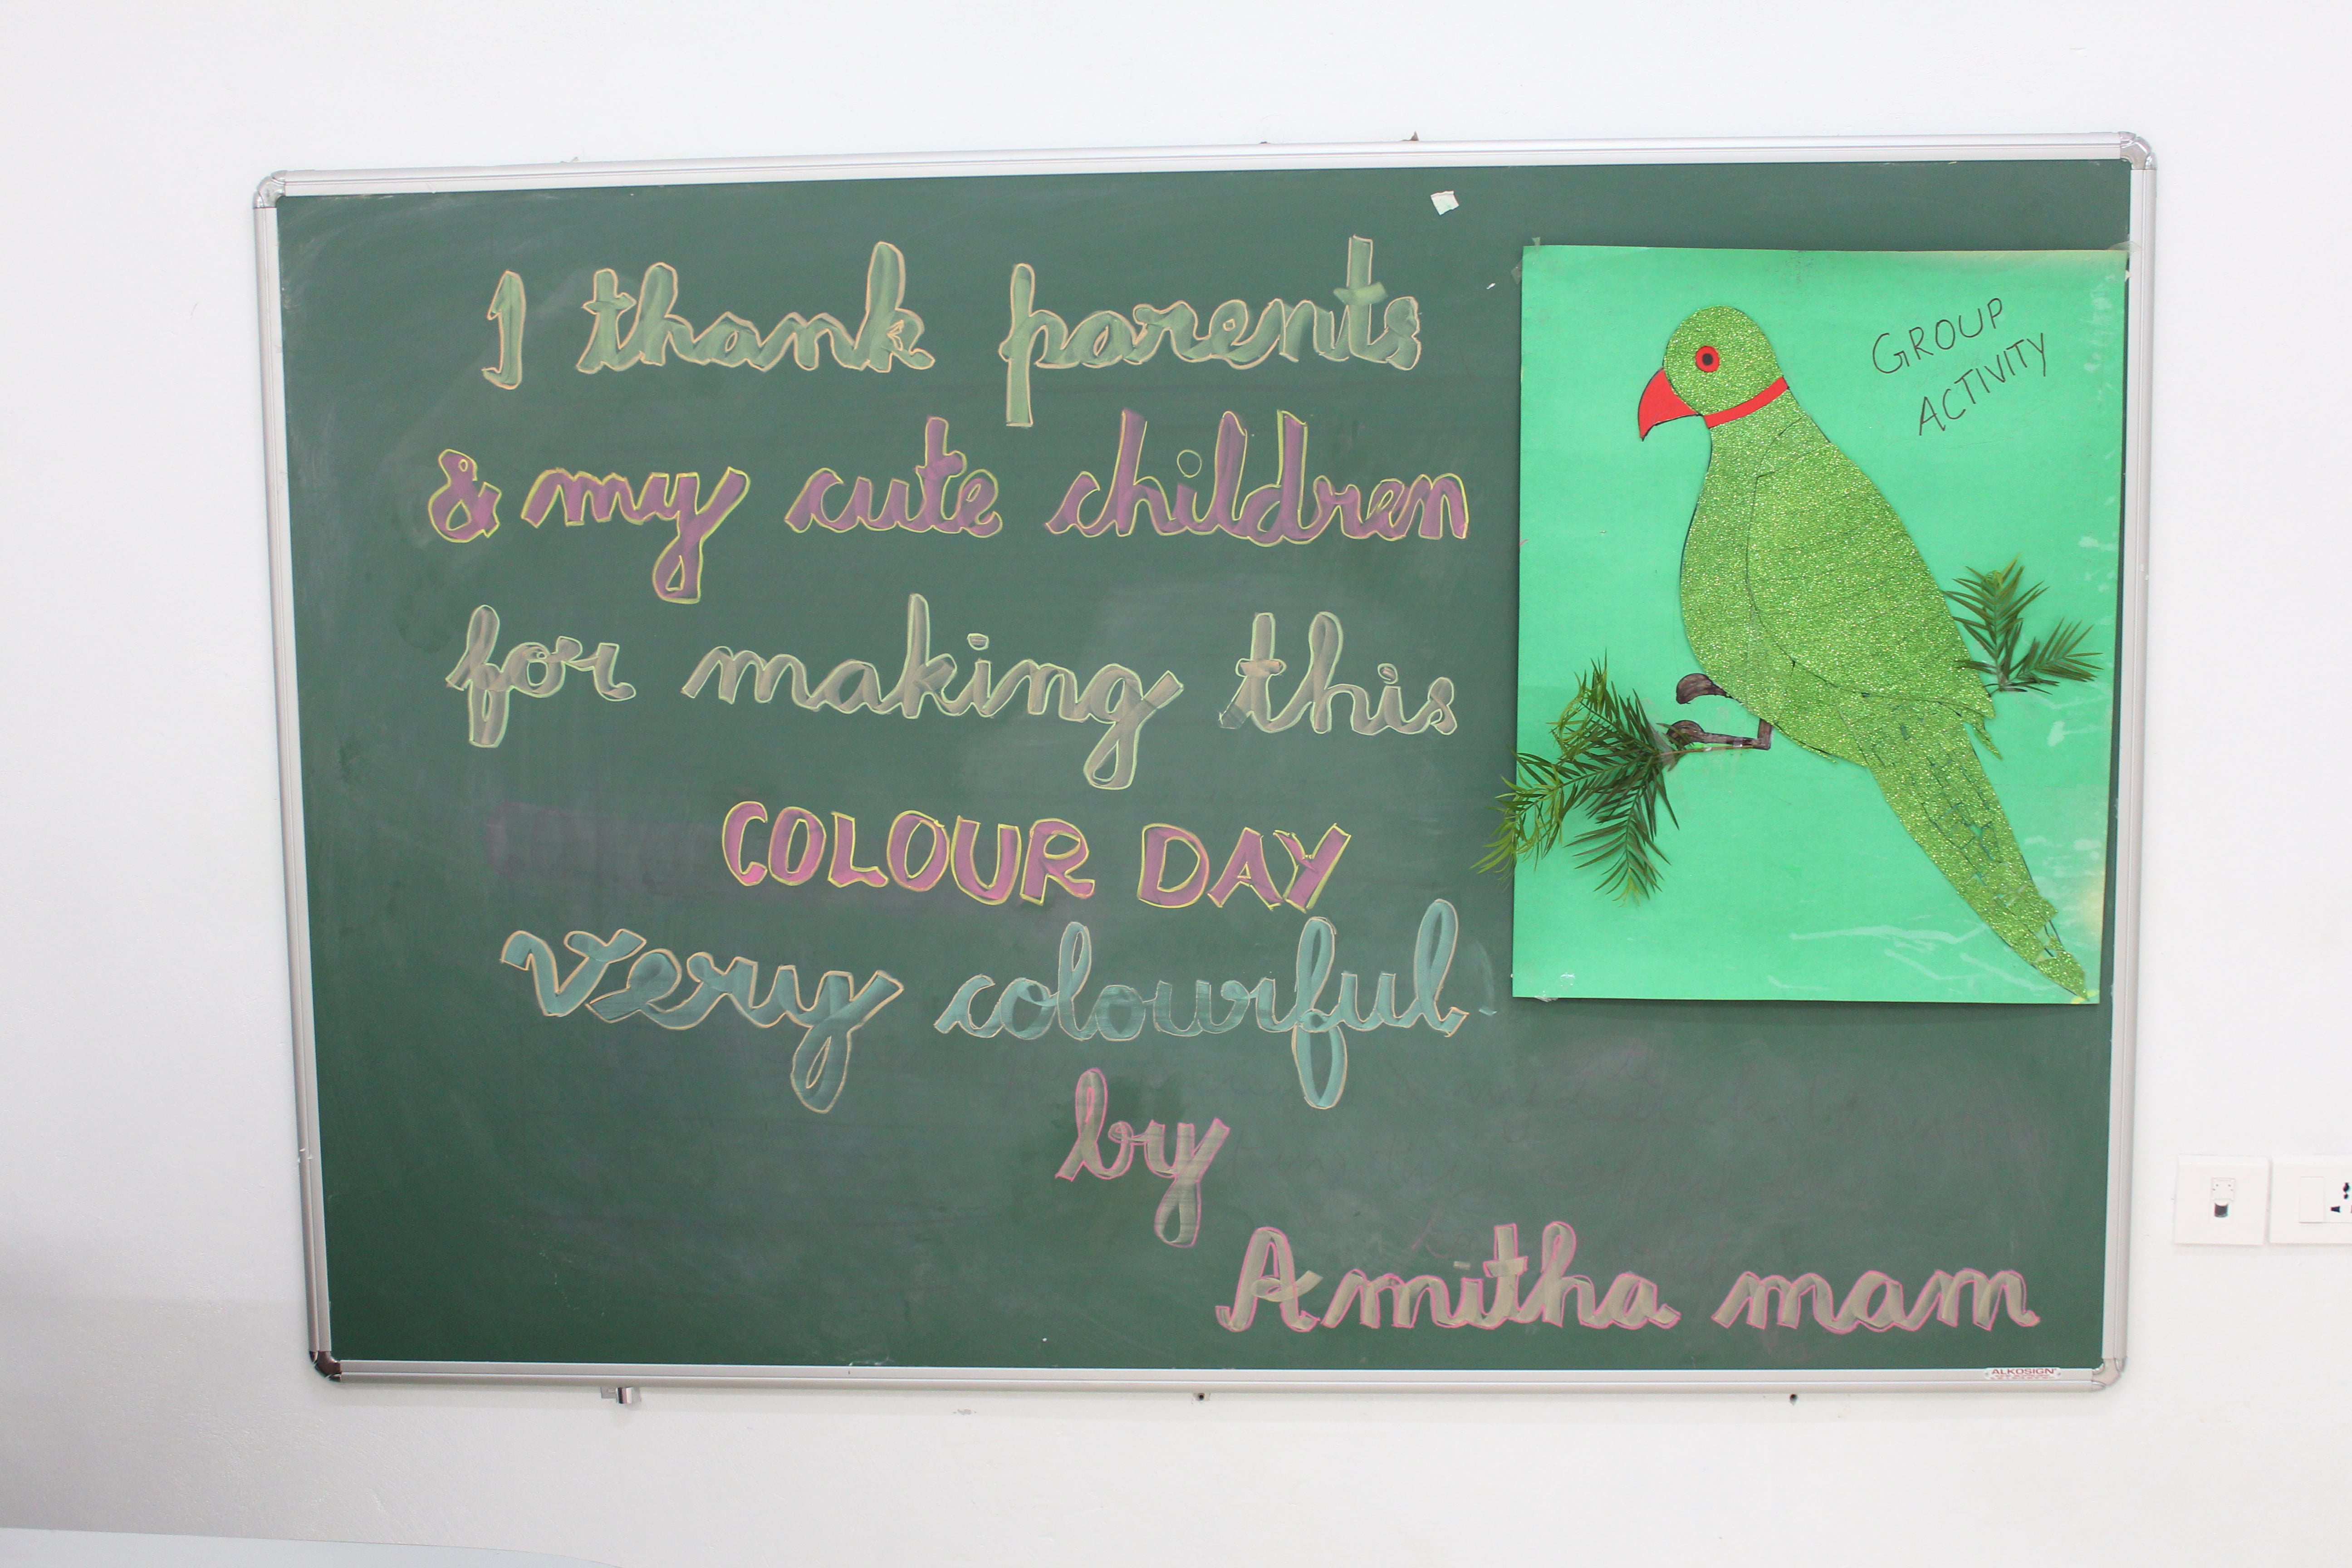 I thank parents
& my cute children
for making this
COLOUR DAY
very colourful.
by
Amitha mam
GROUP
ACTIVITY
ALKOSIGN